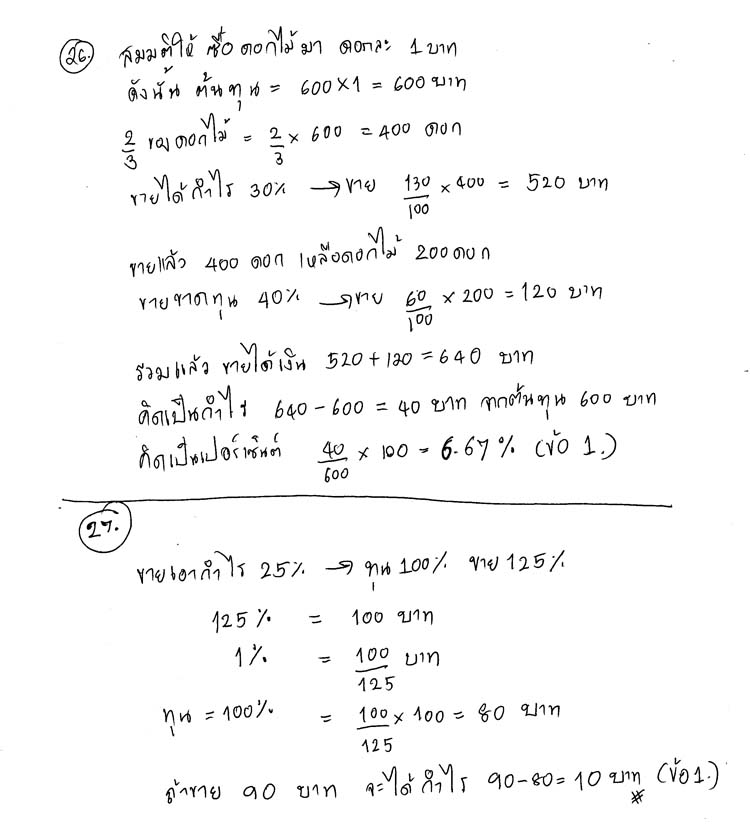 26. สมมติให้ ซื้อดอกไม้มา ดอกละ 1 บาท
ดังนั้น ต้นทุน = 600 × 1 = 600 บาท
2/3 ของดอกไม้ = 2/3 × 600 = 400 ดอก
ขายได้กำไร 30% → ขาย 130/100 × 400 = 520 บาท
ขายแล้ว 400 ดอก เหลือดอกไม้ 200 ดอก
ขายขาดทุน 40% → ขาย 60/100 × 200 = 120 บาท
รวมแล้ว ขายได้เงิน 520 + 120 = 640 บาท
คิดเป็นกำไร 640 - 600 = 40 บาท จากต้นทุน 600 บาท
คิดเป็นเปอร์เซ็นต์ 40/600 × 100 = 6.67 % (ข้อ 1.)
27.
ขายเอากำไร 25% → ทุน 100% ขาย 125%
125 % = 100 บาท
1 % = 100/125 บาท
ทุน = 100% = 100/125 × 100 = 80 บาท
ถ้าขาย 90 บาท จะได้กำไร 90 - 80 = 10 บาท (ข้อ 1.)
#